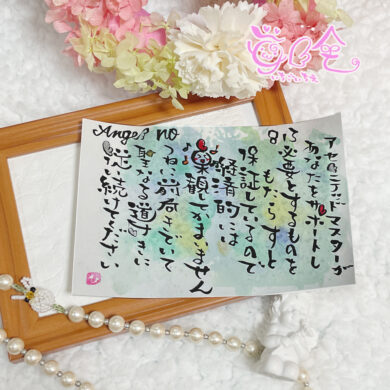 Angel no
813
アセンデッドマスターが
あなたをサポートし
必要とするものを
もたらすと
保証しているので
経済的には
楽観してかまいません
つねに前向きでいて
聖なる道すじに
従い続けてください